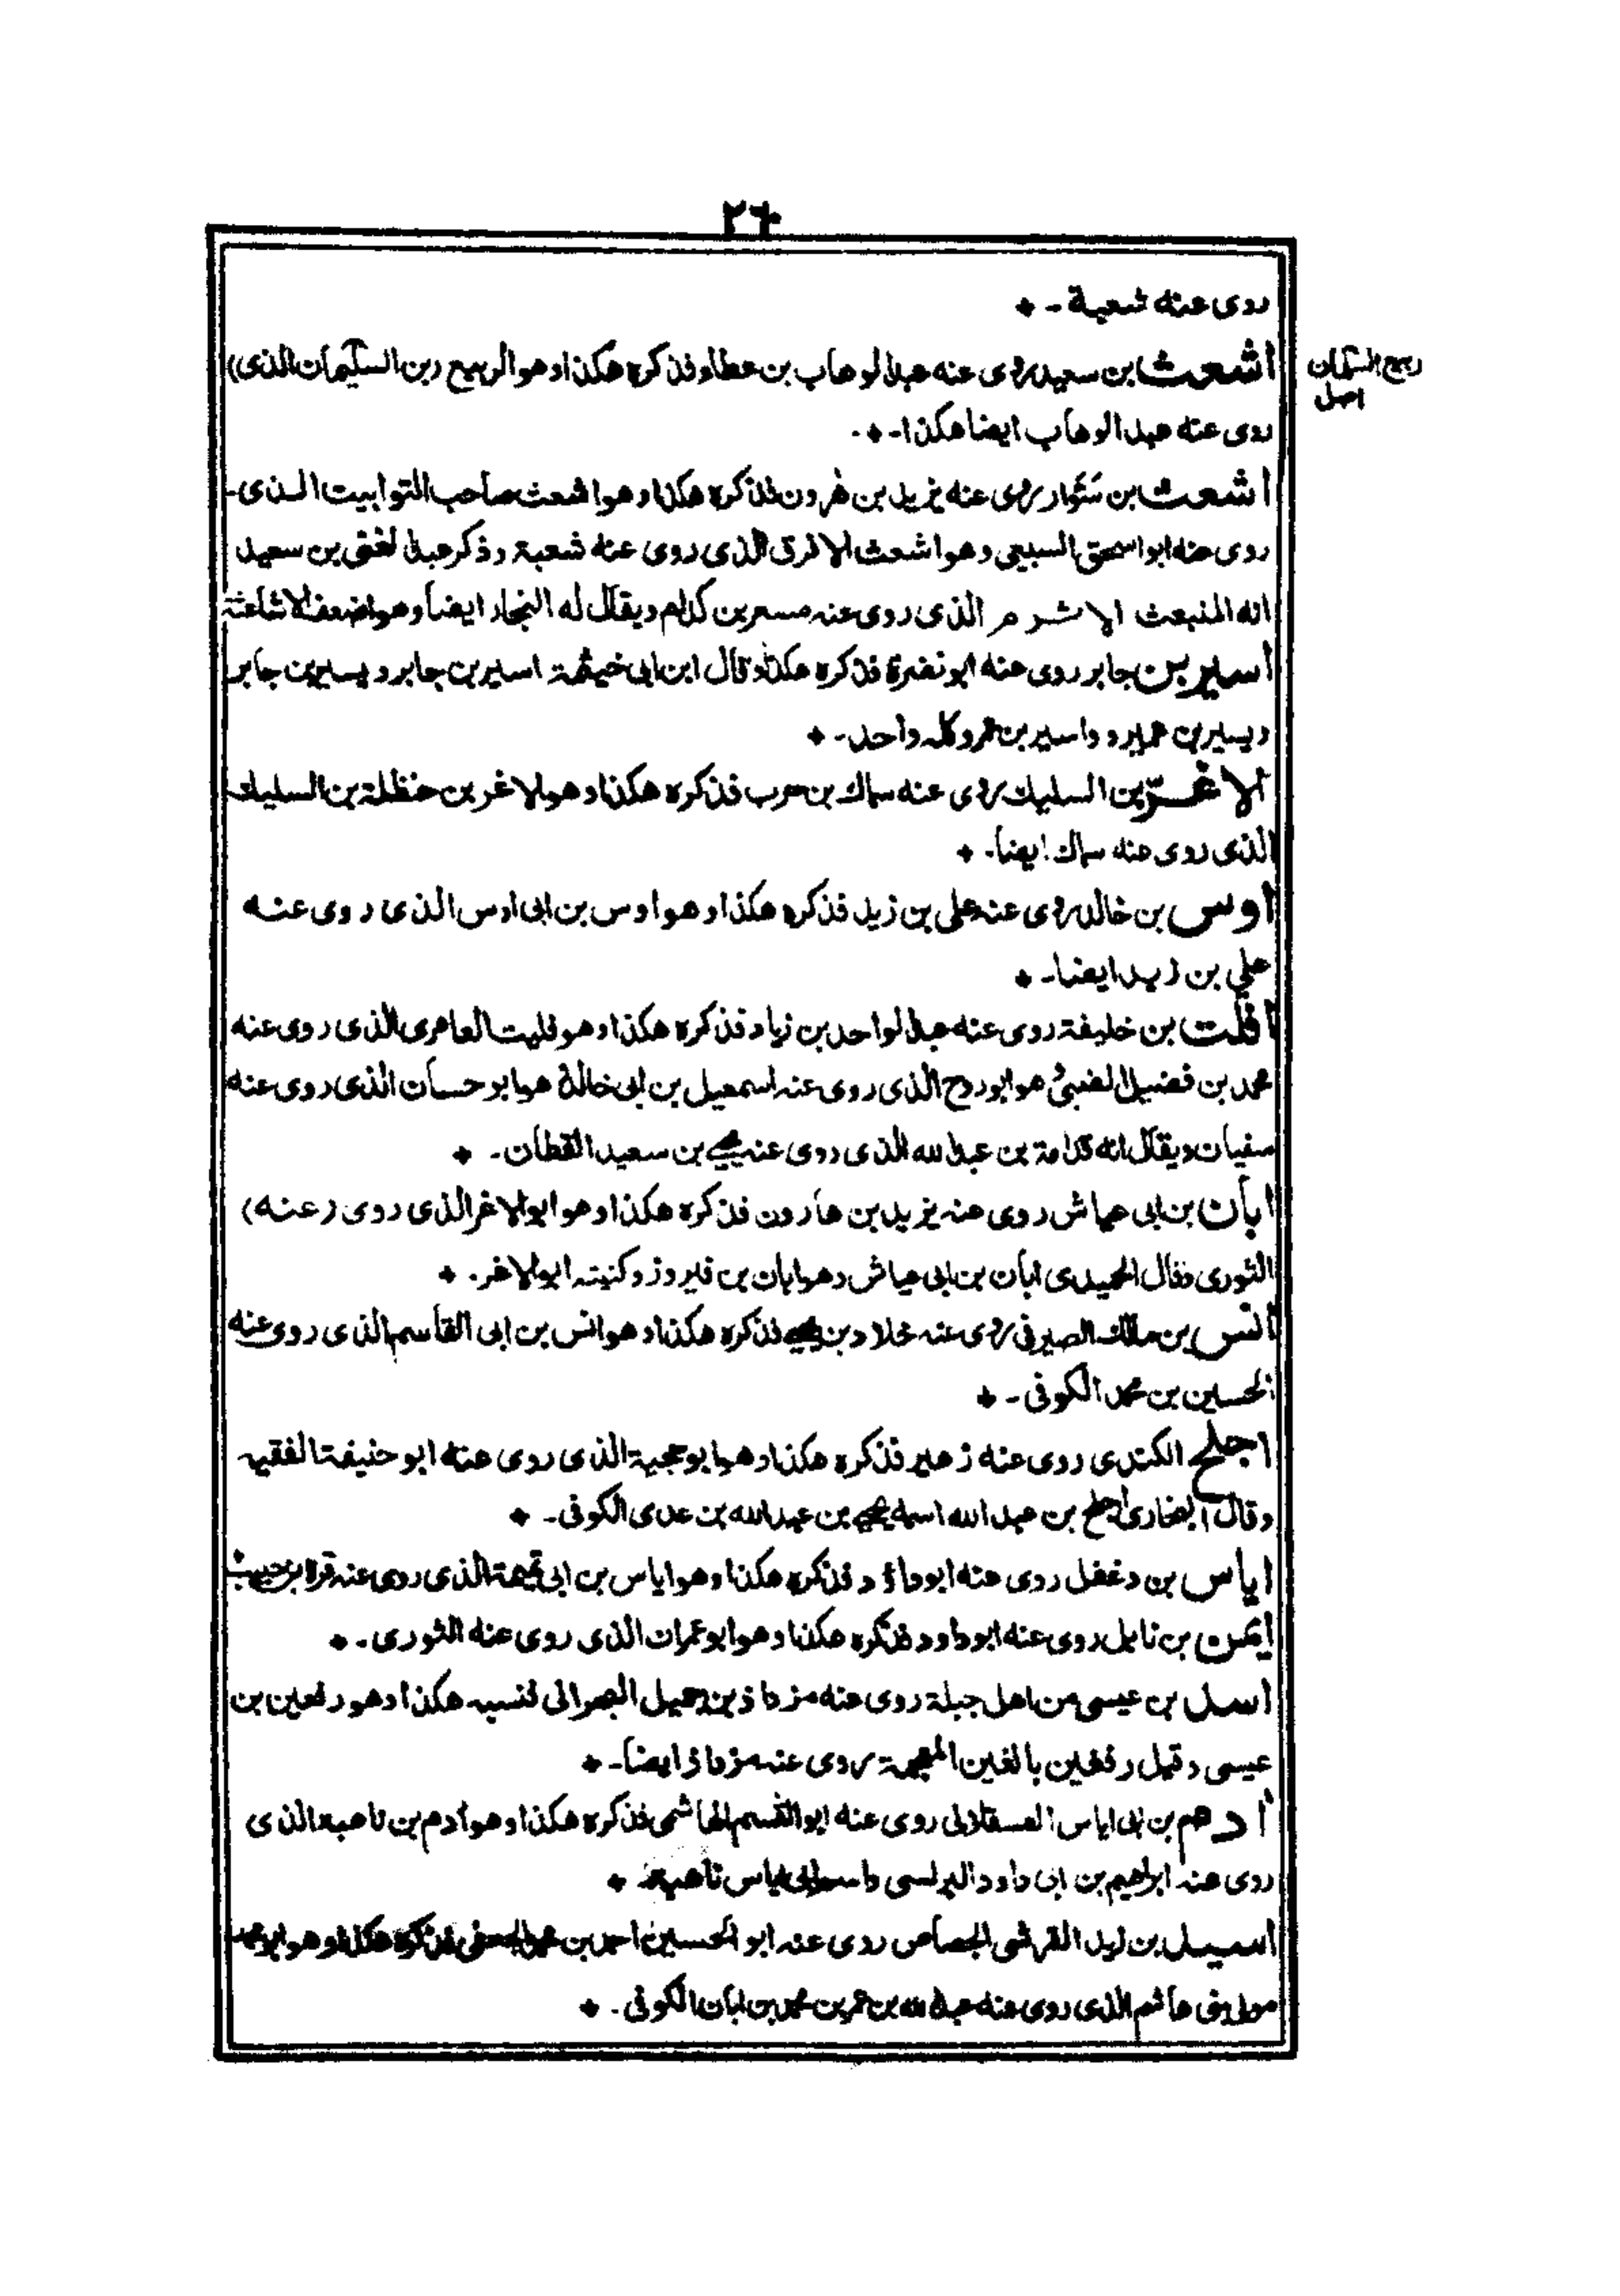 ٢٦
روى عنه شعبة - ٭
أشعث بن سعيد روى عنه عبد الوهاب بن عطاء فذكره هكذا وهو الربيع (بن السليمان الذى)
ربيع السمان
اصل
روى عنه عبد الوهاب ايضا هكذا - ٭
أشعث بن سَوّار روى عنه يزيد بن هٰرون فذكره هكذا وهو اشعث صاحب التوابيت الذى
روى عنه ابو اسحق السبيعى وهو اشعث الازرق الذى روى عنه شعبة وذكر عبد الغنى بن سعيد
انه المنبعث الاشرم الذى روى عنه مسعر بن كدام ويقال له النجار ايضا وهو اضعف الاشاعثة
أسير بن جابر روى عنه ابو نضرة فذكره هكذا وقال ابن ابى خيثمة اسير بن جابر ويسير بن جابر
ويسير بن عمرو واسير بن عمرو كله واحد - ٭
الاغرّ بن السليك روى عنه سماك بن حرب فذكره هكذا وهو الاغر بن حنظلة بن السليك
الذى روى عنه سماك ايضا - ٭
أوس بن خالد روى عنه على بن زيد فذكره هكذا وهو اوس بن ابى اوس الذى روى عنه
على بن زيد ايضا - ٭
افلت بن خليفة روى عنه عبد الواحد بن زياد فذكره هكذا وهو فليت العامرى الذى روى عنه
محمد بن فضيل الضبى وهو ابو روح الذى روى عنه اسمعيل بن ابى خالد وهو ابو حسان الذى روى عنه
سفيان ويقال انه قدامة بن عبد الله الذى روى عنه يحيى بن سعيد القطان - ٭
ابان بن ابى عياش روى عنه يزيد بن هارون فذكره هكذا وهو ابو الاغر الذى روى (عنه)
الثورى فقال الحميدى ابان بن ابى عياش وهو ابان بن فيروز وكنيته ابو الاغر - ٭
انس بن مالك الصيرفى روى عنه خلاد بن يحيى فذكره هكذا وهو انس بن ابى القاسم الذى روى عنه
الحسين بن محمد الكوفى - ٭
اجلح الكندى روى عنه زهير فذكره هكذا وهو ابو حجية الذى روى عنه ابو حنيفة الفقيه
وقال البخارى اجلح بن عبد الله اسمه يحيى بن عبد الله بن عدى الكوفى - ٭
اياس بن دغفل روى عنه ابو داؤد فذكره هكذا وهو اياس بن ابى تميمة الذى روى عنه قرة بن حبيب
ايمن بن نابل روى عنه ابو داود فذكره هكذا وهو ابو عمران الذى روى عنه الثورى - ٭
اسد بن عيسى من اهل جبلة روى عنه مزداذ بن جميل البهرانى فنسبه هكذا وهو رفعين بن
عيسى وقيل رفغين بالغين المعجمة روى عنه مزداذ ايضا - ٭
أدهم بن ابى اياس العسقلانى روى عنه ابو القسم الهاشمى فذكره هكذا وهو آدم بن ناهية الذى
روى عنه ابراهيم بن ابى داود البرلسى واسم ابى اياس ناهية ٭
اسيد بن زيد القرشى الجصاص روى عنه ابو الحسين احمد بن الجعفى فذكره هكذا وهو ابو محمد
مولى بنى هاشم الذى روى عنه عبد الله بن عمر بن محمد بن ابان الكوفى - ٭